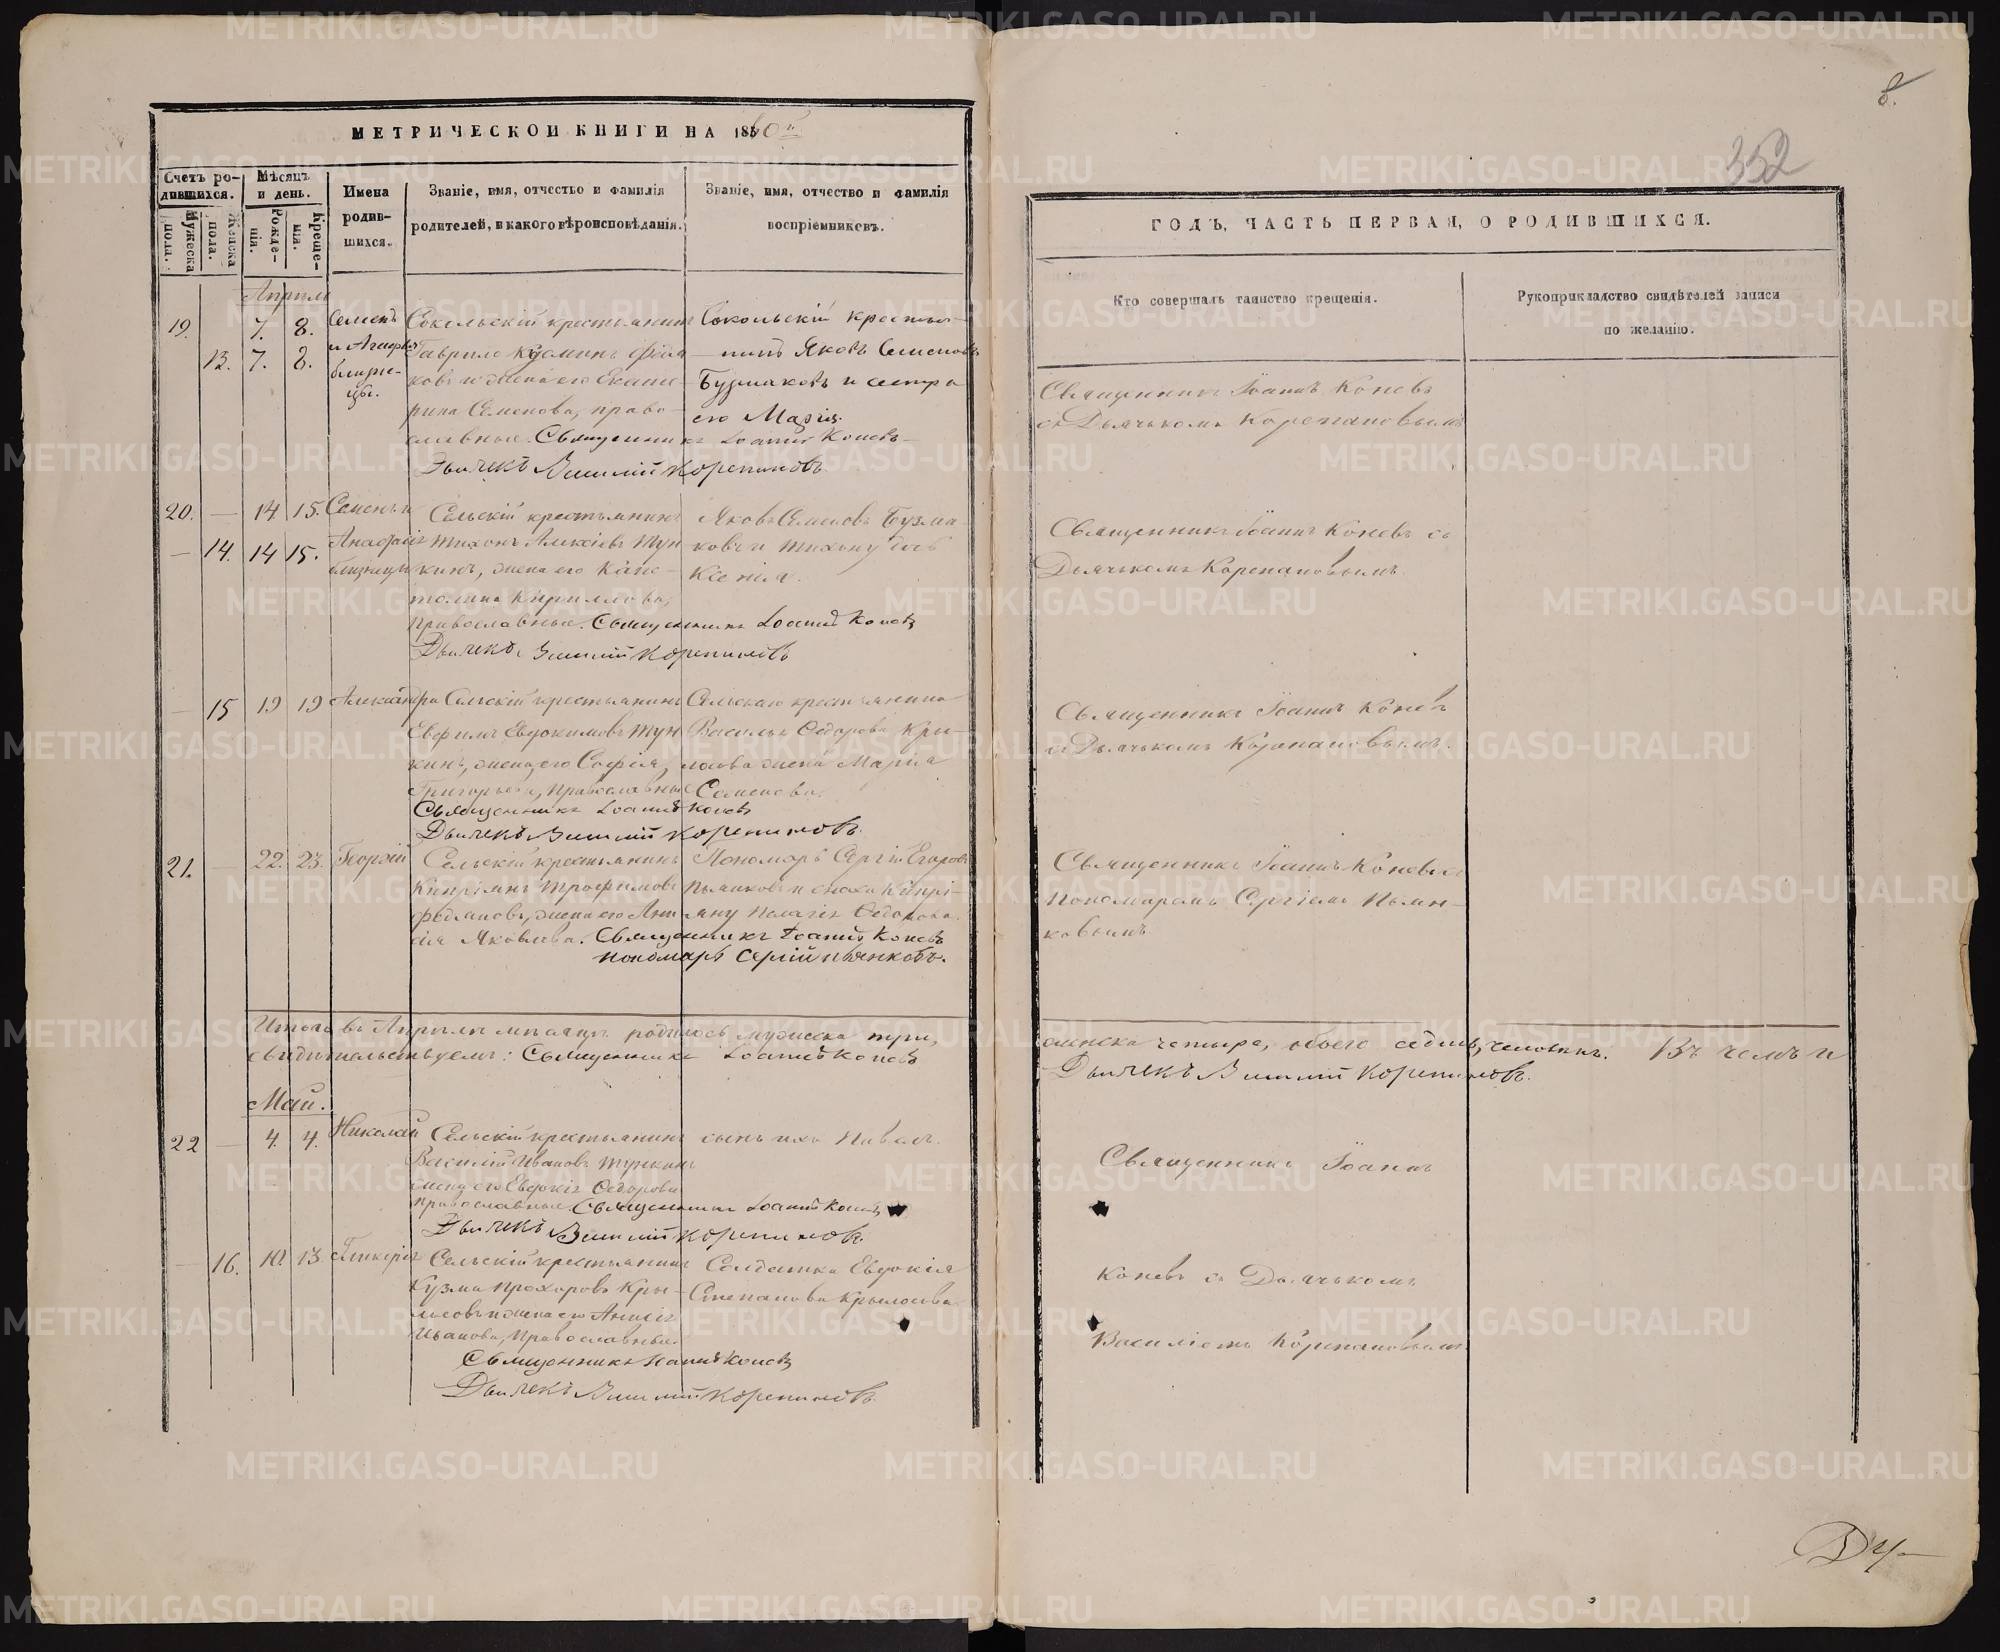 МЕТРИЧЕСКОЙ КНИГИ НА 1860й
Счетъ родившихся.
Мужеска пола.
Женска пола.
Мѣсяцъ и день.
Рожденія.
Крещенія.
Имена родившихся.
Званіе, имя, отчество и фамилія
родителей, и какого вѣроисповѣданія.
Званіе, имя, отчество и фамилія
воспріемниковъ.
Апрѣль
19. 7. 8. Семенъ
13. 7. 8. и Агафья
близне-
цы.
Сокольскій крестьянинъ
Гаврило Кузминъ
ковъ и жена его Екате-
рина Семенова, право-
славные. Священникъ Іоаннъ Коневъ
Дьячекъ Василій Корепановъ
Сокольскій крестья-
нинъ Яковъ Семеновъ
Бузмаковъ и сестра
его Марія.
20. — 14. 15. Семенъ и
— 14. 14 15.
близнецы
Сельскій крестьянинъ
Тихонъ Алексіевъ Тун
кинъ, жена его Капи-
толина Кириллова,
Православные. Священникъ Іоаннъ Коневъ
Дьячекъ Василій Корепановъ
Яковъ Семеновъ Бузма-
ковъ и
Ксенія.
— 15 19 19 Александра
Сельскій крестьянинъ
Евфимъ Евдокимовъ Тун
кинъ, жена его Софія
Григорьева, Православные
Священникъ Іоаннъ Коневъ
Дьячекъ Василій Корепановъ
Сельскаго крестьянина
Василья Ѳедорова Кры-
лосова жена Марія
Семенова.
21. — 22. 23. Георгій
Сельскій крестьянинъ
Кипріянъ Трофимовъ
жена его
Яковлева. Священникъ Іоаннъ Коневъ
Пономарь Сергій Пьянковъ.
Пономарь Сергій Егоровъ
Пьянковъ и сноха Кипрі-
яну Пелагія Ѳедорова.
Итого въ Апрѣлѣ мѣсяцѣ родилось мужеска три,
свидѣтельствуемъ: Священникъ Іоаннъ Коневъ
Май.
22 — 4. 4. Николай
Сельскій крестьянинъ
Василій Ивановъ Тункинъ
жена его Евдокія Ѳедорова
православные. Священникъ Іоаннъ Коневъ
Дьячекъ Василій Корепановъ
сынъ ихъ Павелъ.
— 16. 10. 13. Гликерія
Сельскій крестьянинъ
Кузма Прохоровъ Кры-
лосовъ и жена его
Иванова, Православные.
Священникъ Іоаннъ Коневъ
Дьячекъ Василій Корепановъ
Солдатка Евдокія
Степанова Крылосова.
8.
352
ГОДЪ, ЧАСТЬ ПЕРВАЯ, О РОДИВШИХСЯ.
Кто совершалъ таинство крещенія.
Рукоприкладство свидѣтелей записи
по желанію.
Священникъ Іоаннъ Коневъ
съ Дьячькомъ Корепановымъ
Священникъ Іоаннъ Коневъ съ
Дьячькомъ Корепановымъ
Священникъ Іоаннъ Коневъ
съ Дьячькомъ Корепановымъ.
Священникъ Іоаннъ Коневъ съ
Пономаремъ Сергіемъ Пьян-
ковымъ
женска четыре, обоего седмь человѣкъ. Въ чемъ и
Дьячекъ Василій Корепановъ.
Священникъ Іоаннъ
Коневъ съ Дьячькомъ
Василіемъ Корепановымъ
METRIKI.GASO-URAL.RU